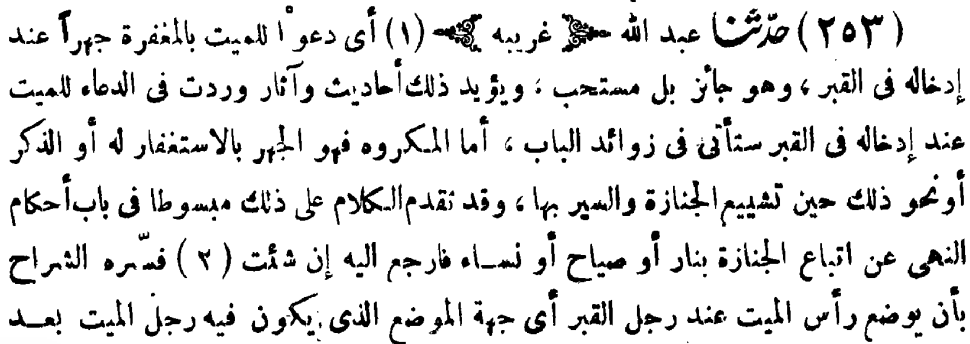 (٢٥٣) حدّثنا عبد الله ﴿ غريبه ﴾ (١) أى دعوا للميت بالمغفرة جهراً عند
إدخاله فى القبر ، وهو جائز بل مستحب ، ويؤيد ذلك أحاديث وآثار وردت فى الدعاء للميت
عند إدخاله فى القبر ستأتى فى زوائد الباب ، أما المكروه فهو الجهر بالاستغفار له أو الذكر
أو نحو ذلك حين تشييع الجنازة والسير بها ، وقد تقدم الكلام على ذلك مبسوطا فى باب أحكام
النهى عن اتباع الجنازة بنار أو صياح أو نساء فارجع اليه إن شئت (٢) فسّره الشراح
بأن يوضع رأس الميت عند رجل القبر أى جهة الموضع الذى يكون فيه رجل الميت بعد